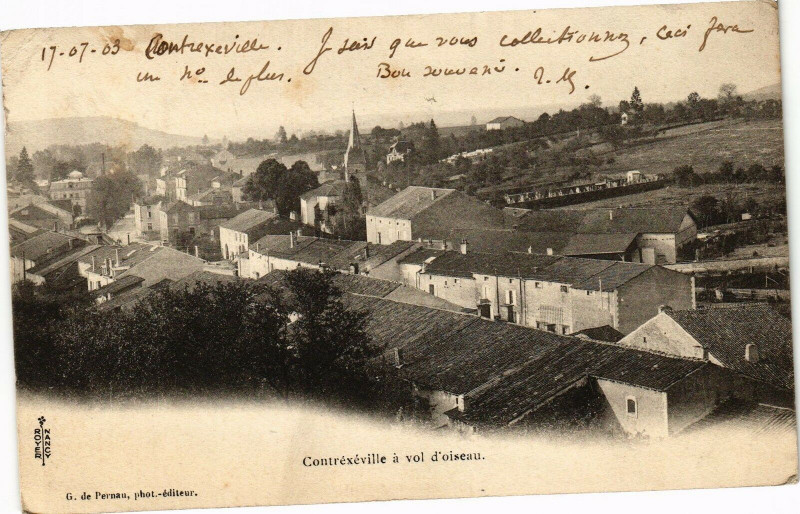 17-07-03 Contrexeville. Je sais que vous collectionnez, ceci fera
un no de plus. Bon souvenir.
ROYER
NANCY
Contréxéville à vol d'oiseau.
G. de Pernau, phot.-éditeur.